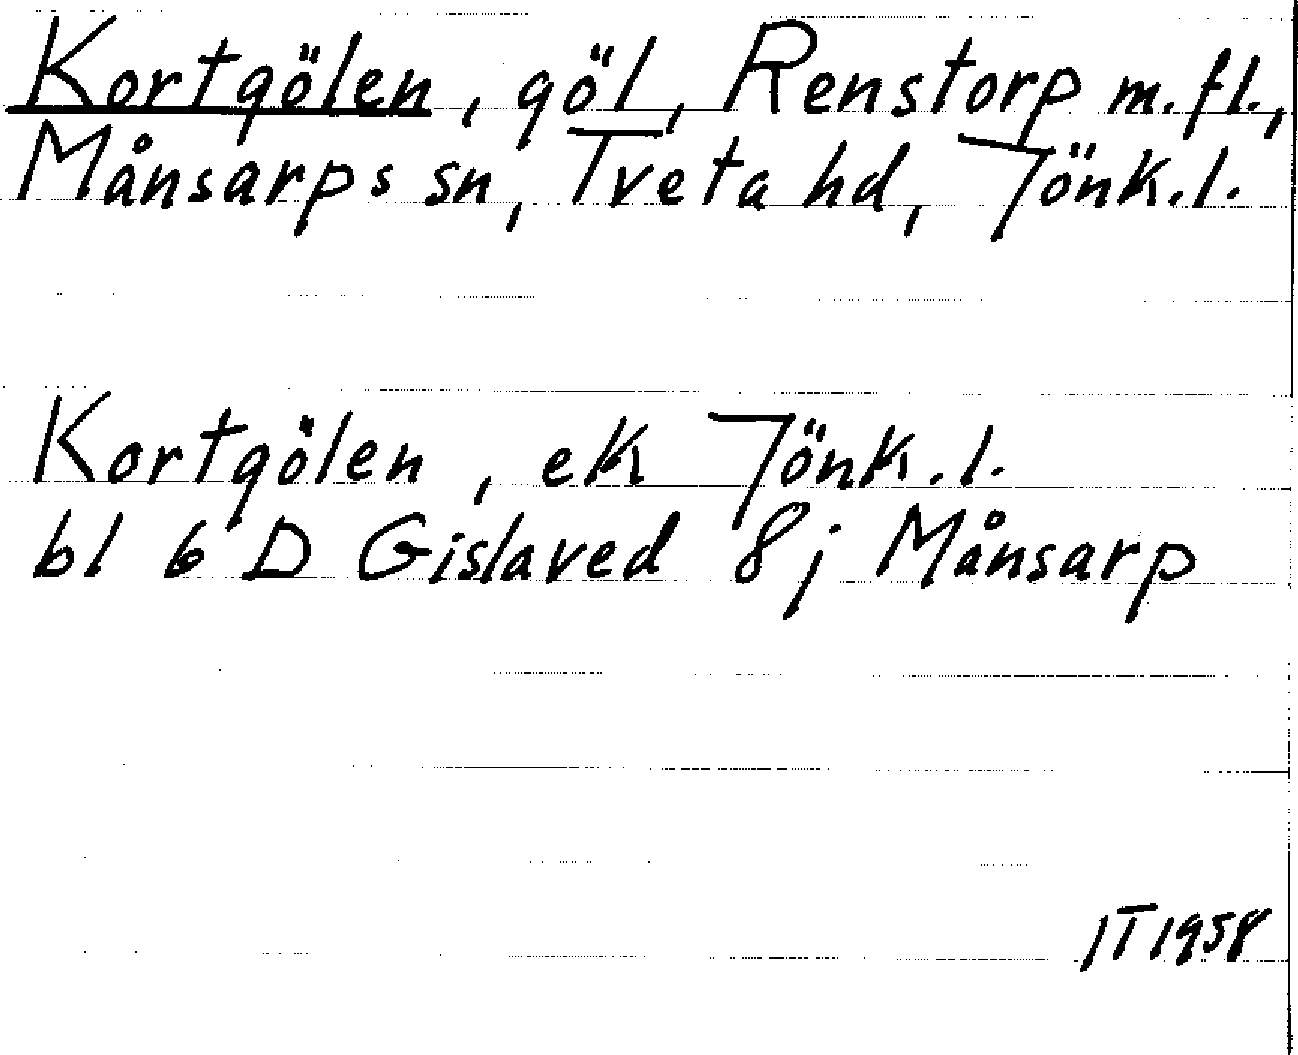 Kortgölen, göl, Renstorp m.fl.,
Månsarps sn, Tveta hd, Jönk.l.
Kortgölen, ek Jönk.l.
bl 6 D Gislaved 8j Månsarp
IT 1958